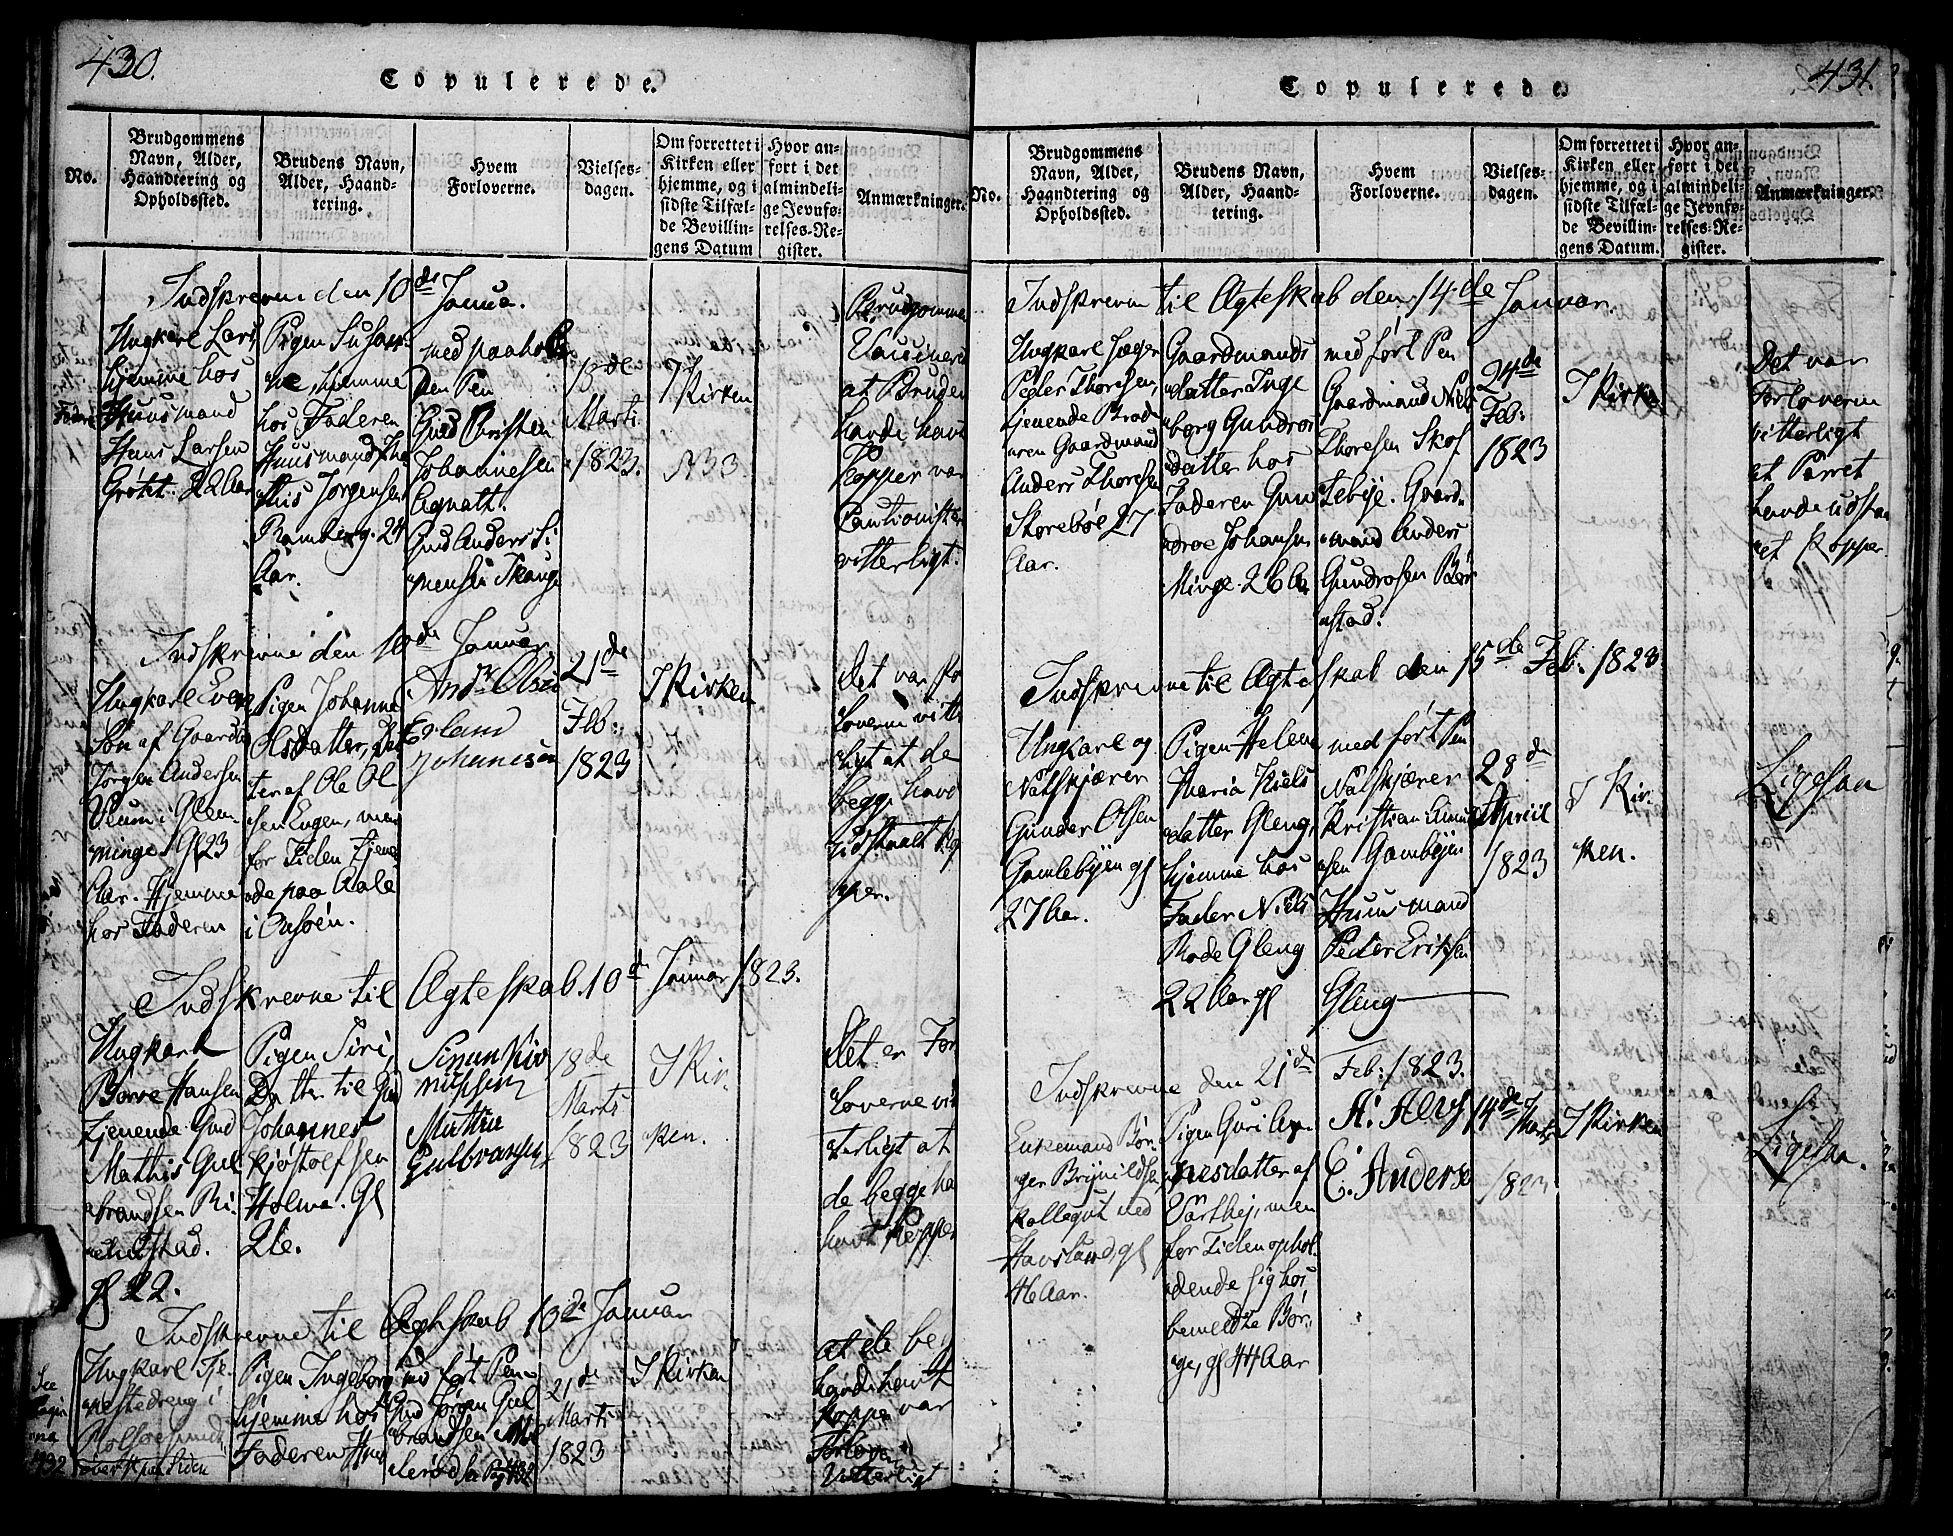 430.
Copulerede.
No.
Brudgommens
Navn, Alder,
Haandtering og
Opholdssted.
Brudens Navn,
Alder, Haand-
tering.
Hvem
Forloverne.
Vielses-
dagen.
Om forrettet i
Kirken eller
hjemme, og i
sidste Tilfæl-
de Bevillin-
gens Datum
Hvor an-
ført i det
almindeli-
ge Jevnfø-
relses-Re-
gister.
Anmærkninger.
Indskrevne den 10de Janua.
Ungkarl Lars
hjemme hos
Huusmand
Hans Larsen
Grötet. 22 Aar
Pigen Susan-
ne hjemme
hos Faderen
Huusmand
this Jörgensen
Ramberg. 24
Aar.
med paahol-
den Pen
Gmd Christen
Johannesen
Agnalt.
Gmd Anders Si
mensen
18de
Marti
1823.
I
Kirken
N 33
Brudgommen
Vaccineret
at Bruden
havde havt
Kopper var
Cautionisterne
vitterligt.
Indskrevne den 10de Januar.
Ungkarl Even
Sön af Gaardb
Jörgen Andersen
Ulum i Glem-
minge Gl 23
Aar. Hjemme
hos Faderen
Pigen Johanna
Olsdatter, Dat
ter af Ole Ol
sen Engen, men
for Tiden tjenen
de paa Aale
i Onsöen.
Andr Olsen
Johannesen
21de
Feb:
1823
I Kirken
Det var For
loverne vitter
ligt at de
begge havde
udstaaet Kop
per.
Indskrevne til Ægteskab 10de Januar 1823.
Ungkarl
Börre Hansen
tjenende Gmd
Mathis Gul
brandsen Ri
stad.
gl 22.
Pigen Siri,
Datter til Gm
Johannes
Kjöstolfsen
Holme. Gl
26.
Simen Kir
Mathis
Gulbransen
18de
Marts
1823
I Kir-
ken.
Det er For
loverne vit
terligt at
de begge ha
havt Kopper
Indskrevne til Ægteskab 10de Januar
See
Pagina
432
Ungkarl Tje
nestedreng i
for Tiden
Pigen Ingeborg
hjemme hos
Faderen Hmd
med fört Pen
Gmd Jörgen Gul
brandsen
Pag 432
21de
Marts
1823
I Kirken
at de beg
havde havt
Kopper var
Forloverne
Vitterligt
431.
Copulerede.
No.
Brudgommens
Navn, Alder,
Haandtering og
Opholdssted.
Brudens Navn,
Alder, Haand-
tering.
Hvem
Forloverne.
Vielses-
dagen.
Om forrettet i
Kirken eller
hjemme, og i
sidste Tilfæl-
de Bevillin-
gens Datum.
Hvor an-
ført i det
almindeli-
ge Jevnfø-
relses-Re-
gister.
Anmærkninger.
Indskrevne til Ægteskab den 14de Januar.
Ungkarl Jæger
Peder Thoresen,
tjenende Brod
eren Gaardmand
Anders Thoresen
Storeböe 27
Aar.
Gaardmands
datter Inge
borg Gundros
datter hos
Faderen Gun
droe Johansen
Minge. 26 Aar
med fört Pen
Gaardmand Niels
Thoresen Skof
tebÿe. Gaard
mand Anders
Gundrosen Bör
stad.
24de
Feb:
1823
I Kirken
Det var
Forloverne
vitterligt
at Parret
havde udstaa
et Kopper.
Indskrevne til Ægteskab den 15de Feb. 1823
Ungkarl og
Natskjærer
Gunder Olsen
Gamlebÿen gl
27 Aar.
Pigen Helene
Maria Niels
datter Gleng,
hjemme hos
Fader Niels
Rode Gleng
22 Aar gl
med fört Pen
Natskjærer
Kristian Amund
sen Gambÿen
Huusmand
Peder Eriksen
Gleng
28de
Apriil
1823
I Kir-
ken.
Ligesaa
Indskrevne den 21de Feb: 1823.
Enkemand Bör-
ger Brÿnildsen,
Kollegut ved
Havslund, gl
46 Aar.
Pigen Guri
nesdatter af
men
for Tiden ophol
dende sig hos
bemeldte Bör-
ge, gl 44 Aar
A: Alvs
E. Anderse
14de Marts
1823
I Kirken
Ligesaa.